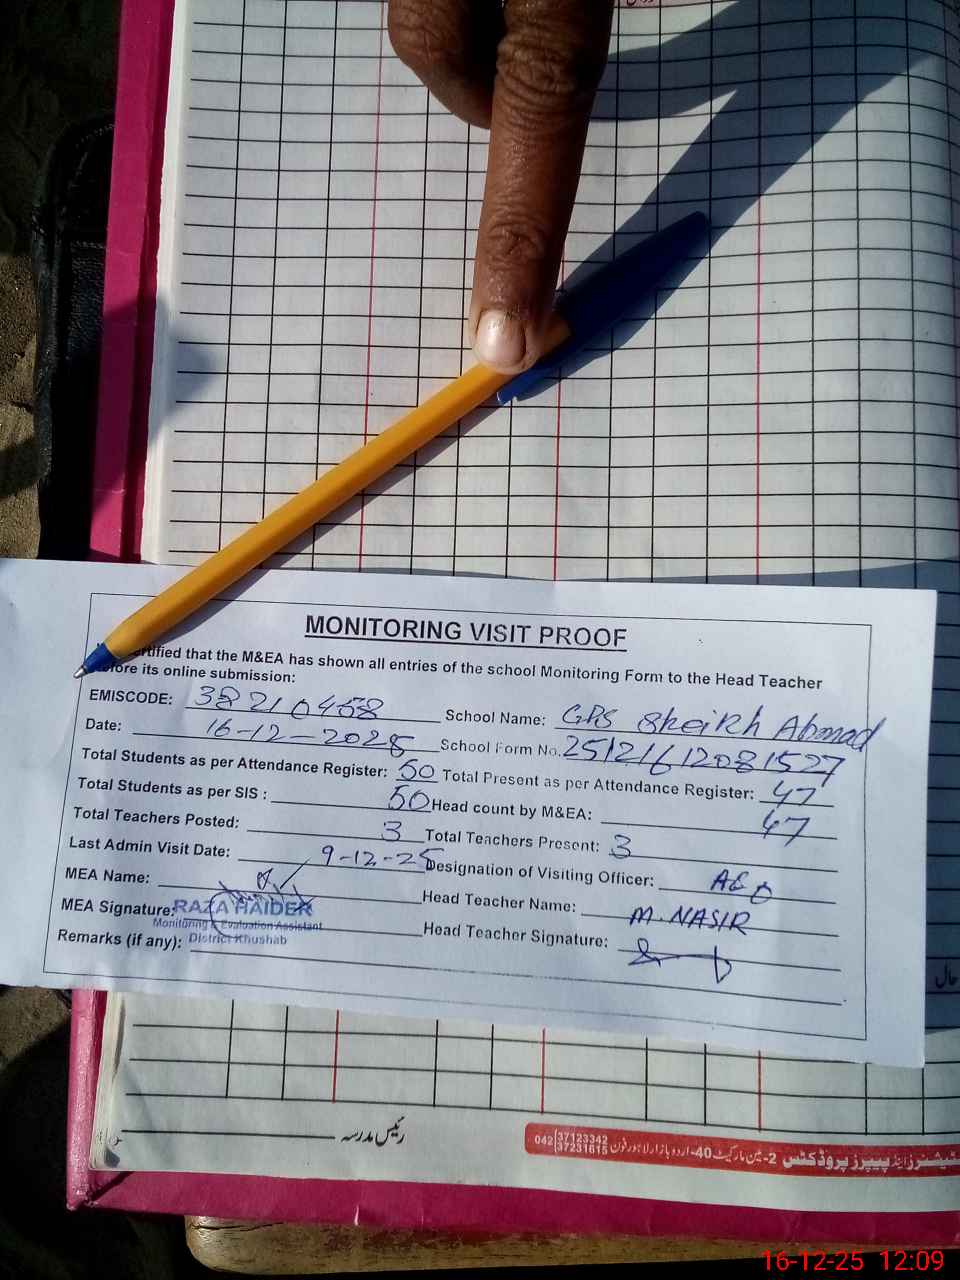 MONITORING VISIT PROOF
certified that the M&EA has shown all entries of the school Monitoring Form to the Head Teacher
before its online submission:
EMISCODE: 38210458 School Name: GPS Sheikh Ahmad
Date: 16-12-2025 School Form No. 25121612081527
Total Students as per Attendance Register: 50 Total Present as per Attendance Register: 47
Total Students as per SIS : 50 Head count by M&EA: 47
Total Teachers Posted: 3 Total Teachers Present: 3
Last Admin Visit Date: 9-12-25 Designation of Visiting Officer: AEO
MEA Name: Head Teacher Name: M. NASIR
MEA Signature: RAZA HAIDER Head Teacher Signature:
Monitoring & Evaluation Assistant
Remarks (if any): District Khushab
حال
رئیس مدرسہ
042 37123342 37231615 پیپرز پروڈکٹس 2-مین مارکیٹ 40-اردو بازار لاہور فون
16-12-25 12:09